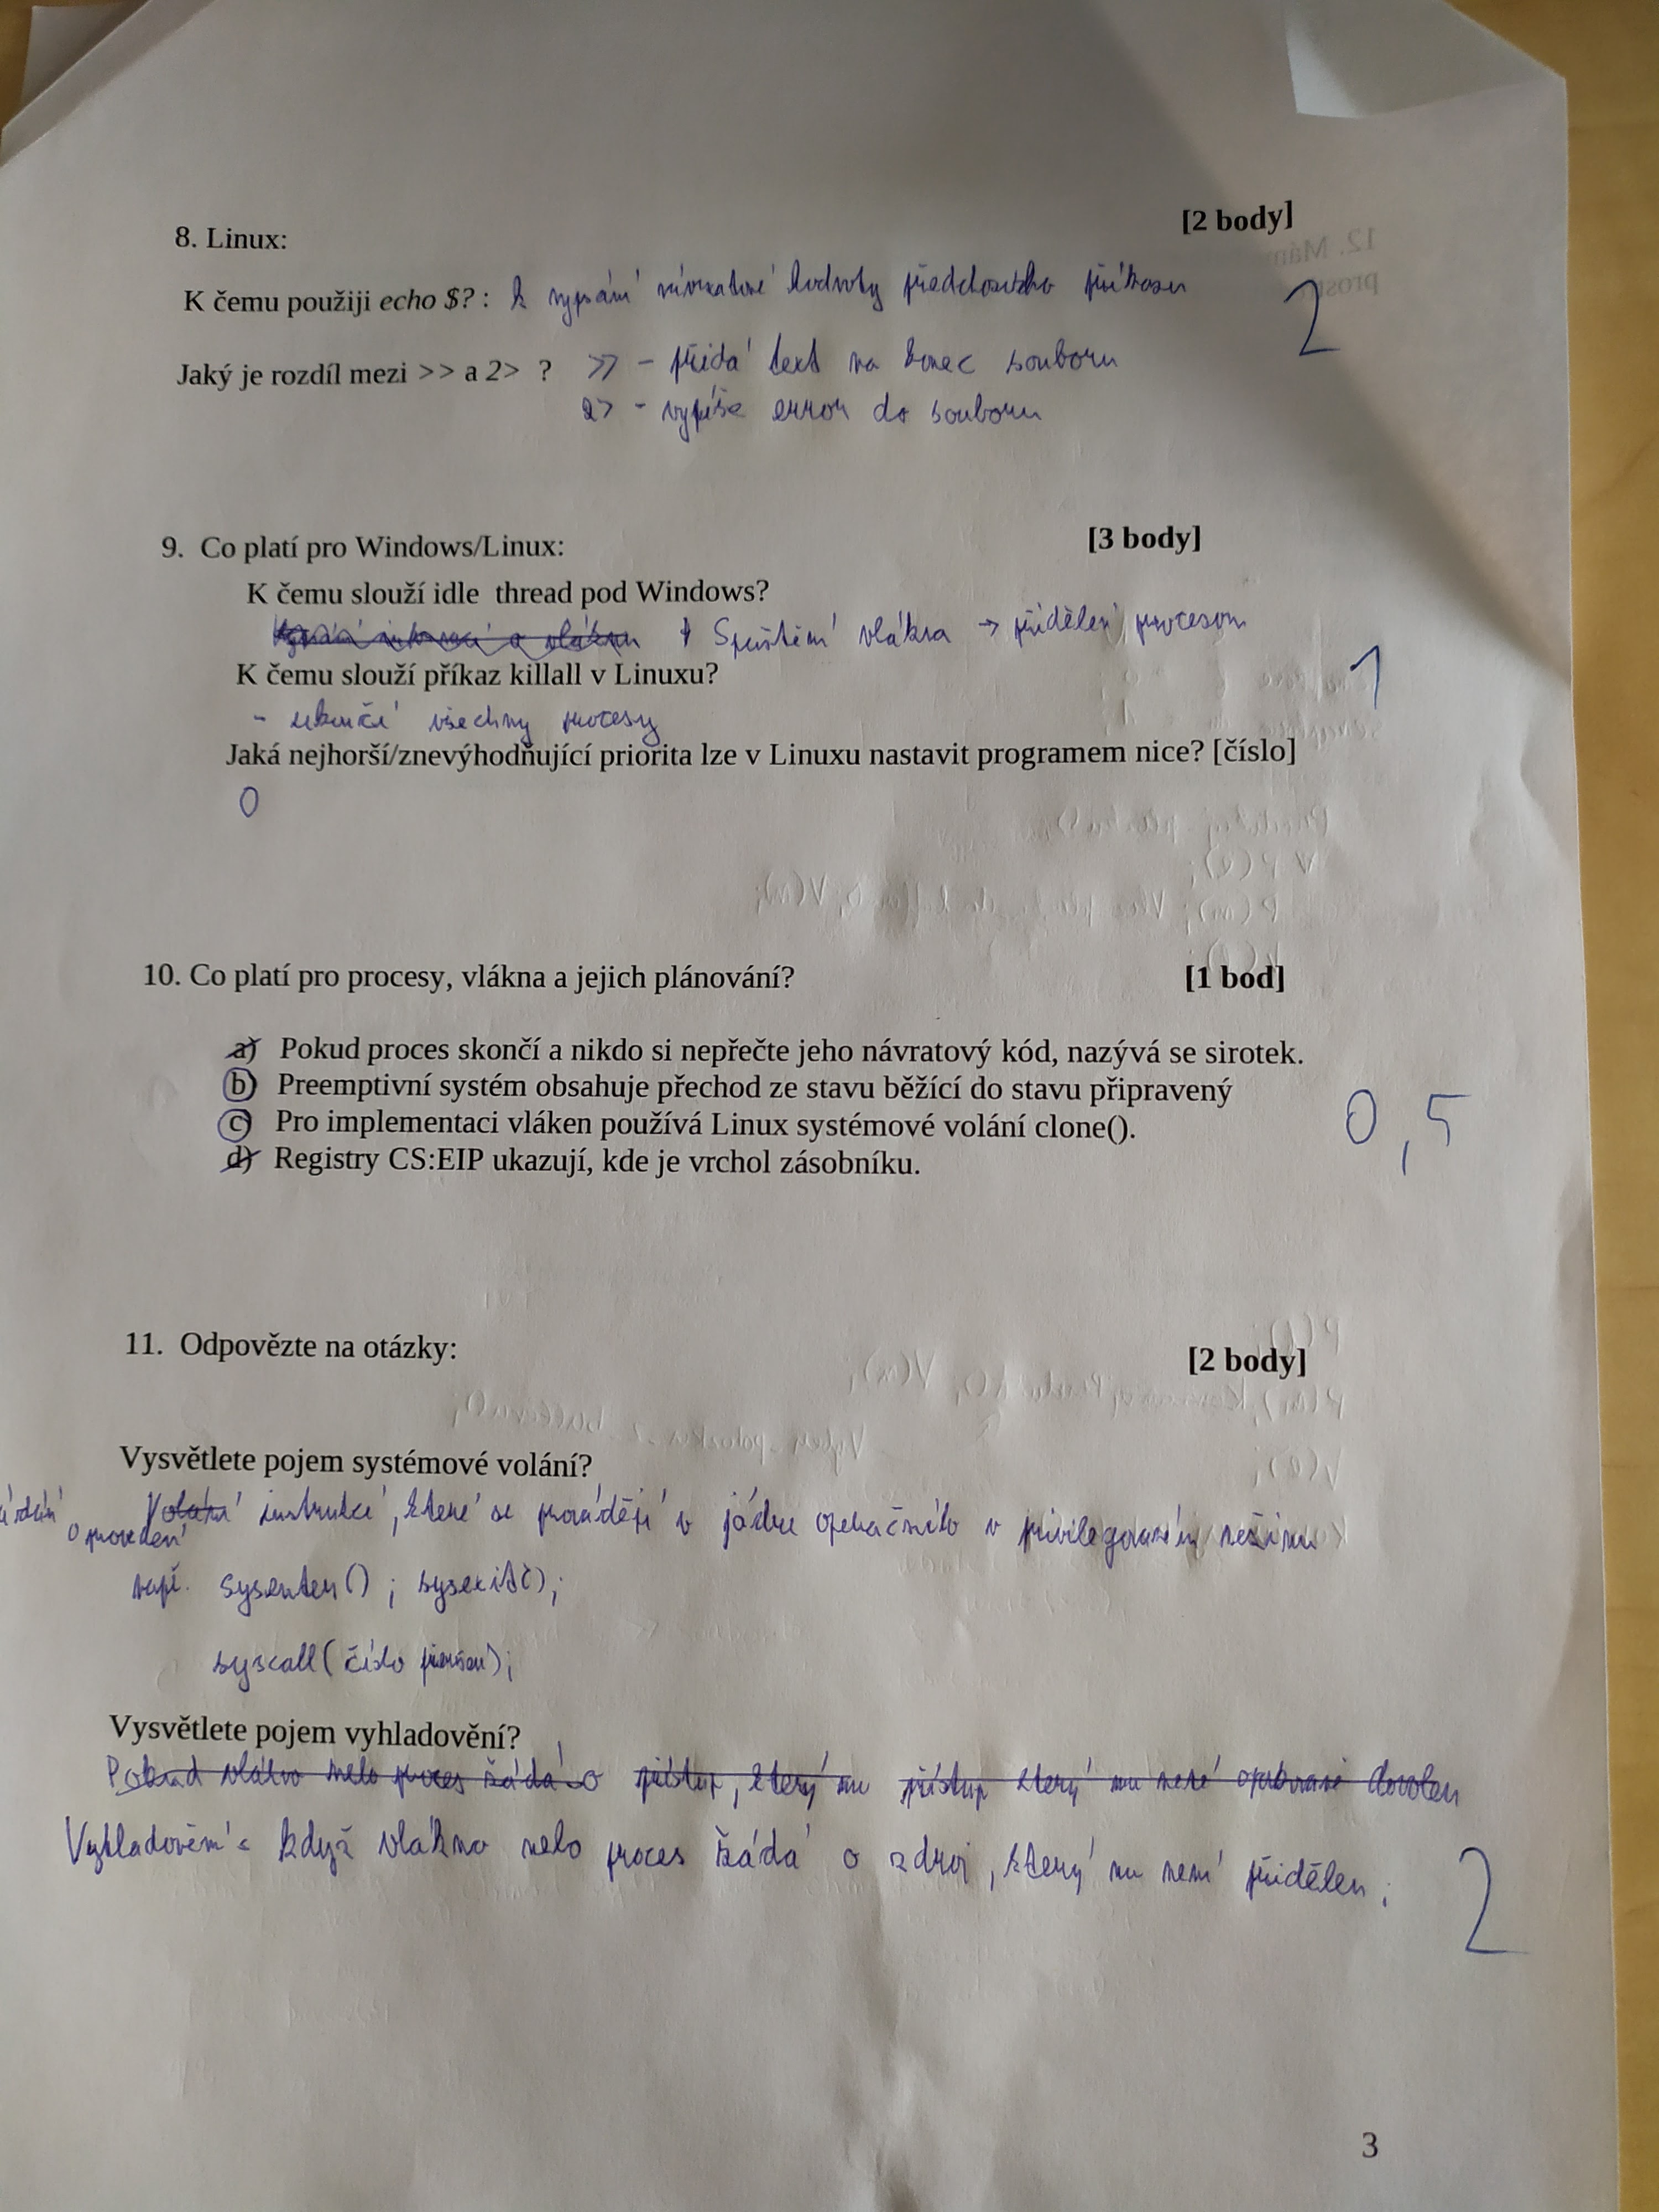 8. Linux: [2 body]
K čemu použiji echo $? : k vypsání návratové hodnoty předchozího příkazu
2
Jaký je rozdíl mezi >> a 2> ? >> - přidá text na konec souboru
2> - vypíše error do souboru
9. Co platí pro Windows/Linux: [3 body]
K čemu slouží idle thread pod Windows?
Spuštění vlákna → přidělení procesoru
K čemu slouží příkaz killall v Linuxu?
1
- ukončí všechny procesy
Jaká nejhorší/znevýhodňující priorita lze v Linuxu nastavit programem nice? [číslo]
0
10. Co platí pro procesy, vlákna a jejich plánování? [1 bod]
a) Pokud proces skončí a nikdo si nepřečte jeho návratový kód, nazývá se sirotek.
b) Preemptivní systém obsahuje přechod ze stavu běžící do stavu připravený
c) Pro implementaci vláken používá Linux systémové volání clone().
0,5
d) Registry CS:EIP ukazují, kde je vrchol zásobníku.
11. Odpovězte na otázky: [2 body]
Vysvětlete pojem systémové volání?
Volání instrukcí, které se provádějí v jádru v privilegovaném režimu
o provedení
např. sysenter() ; sysexit();
syscall( číslo );
Vysvětlete pojem vyhladovění?
Pokud vlákno nebo proces žádá o přístup, který mu přístup který mu není dovolen
Vyhladovění = když vlákno nebo proces žádá o zdroj, který mu není přidělen;
2
3